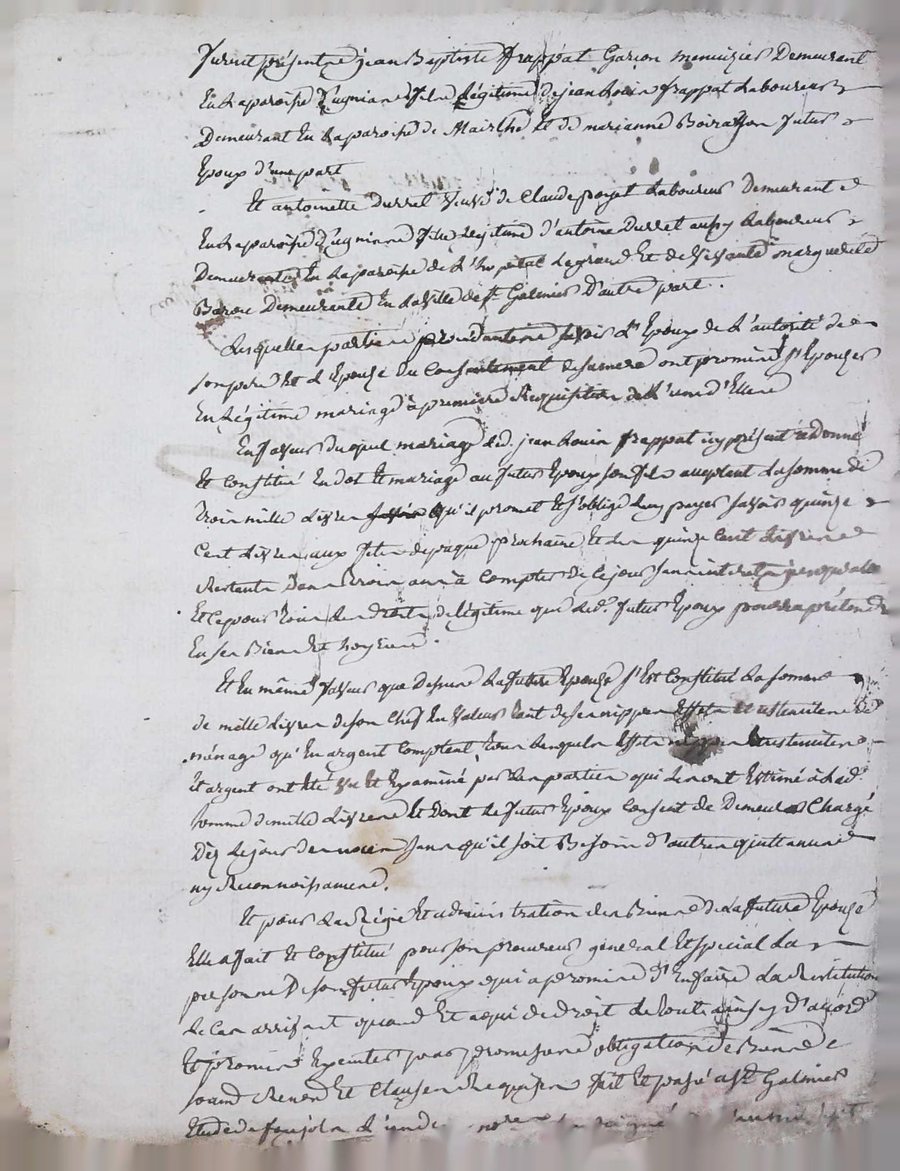 furent présents jean Baptiste frappat Garçon menuizier Demeurant
En la paroisse fils Légitime de jean Louis frappat Laboureur
Demeurant En la paroisse de Mairlhe Et de marianne futur
Epoux d'une part
Et antoinette Durret veuve de Claude poyet Laboureur Demeurant
En la paroisse fille Legitime d'antoine Durret aussy Laboureur
Demeurants En la paroisse de L'hopital Legrand Et de vivante marguerite
Baron Demeurante En la ville de St Galmier D'autre part.
Lesquelles parties procedantes savoir L'Epoux de L'autorité de
son pere Et L'Epouze du Consentement de sa mere ont promis s'Epouzer
En Légitime mariage à premiere Requisition de L'un d'Elles
En faveur duquel mariage led. jean Louis frappat icy présent a donné
Et constitué En dot Et mariage au futur Epoux son fils acceptant La somme de
trois mille Livres qu'il promet Et s'oblige luy payer savoir quinze
Cent Livres aux fetes de paque prochaine Et Les quinze Cent Livres
Restants Dans trois ans à Compter de Ce jour sans interets jusqu'alors
Et Ce pour tous Les droits de légitime que led. futur Epoux pourra prétendre
En ses Biens Et hoyries.
Et En même faveur que Dessus La future Epouze s'Est Constitué La somme
de mille Livres de son Chef En valeur tant de ses nippes Effets Et ustenciles de
ménage qu'En argent Comptant tous Lesquels Effets nippes ustenciles
Et argent ont Eté vu Et Examiné par Les parties qui Les ont Estimé à lad.
somme de mille Livres Et Dont Le futur Epoux Consent de Demeurer Chargé
Dès Le jour Des noces sans qu'il soit Besoin d'autres quittances
ny Reconnoissances.
Et pour La Régie Et administration des Biens de La future Epouze
Elle a fait Et Constitué pour son procureur général Et spécial La
personne De son futur Epoux qui a promis d'En faire La Restitution
Le Cas arrivant quand Et a qui de droit de tout ainsy d'accord
Et promis Executer par promesses obligation de Biens
soumis Renon Et Clauses Requises fait Et passé a St Galmier
Etude de